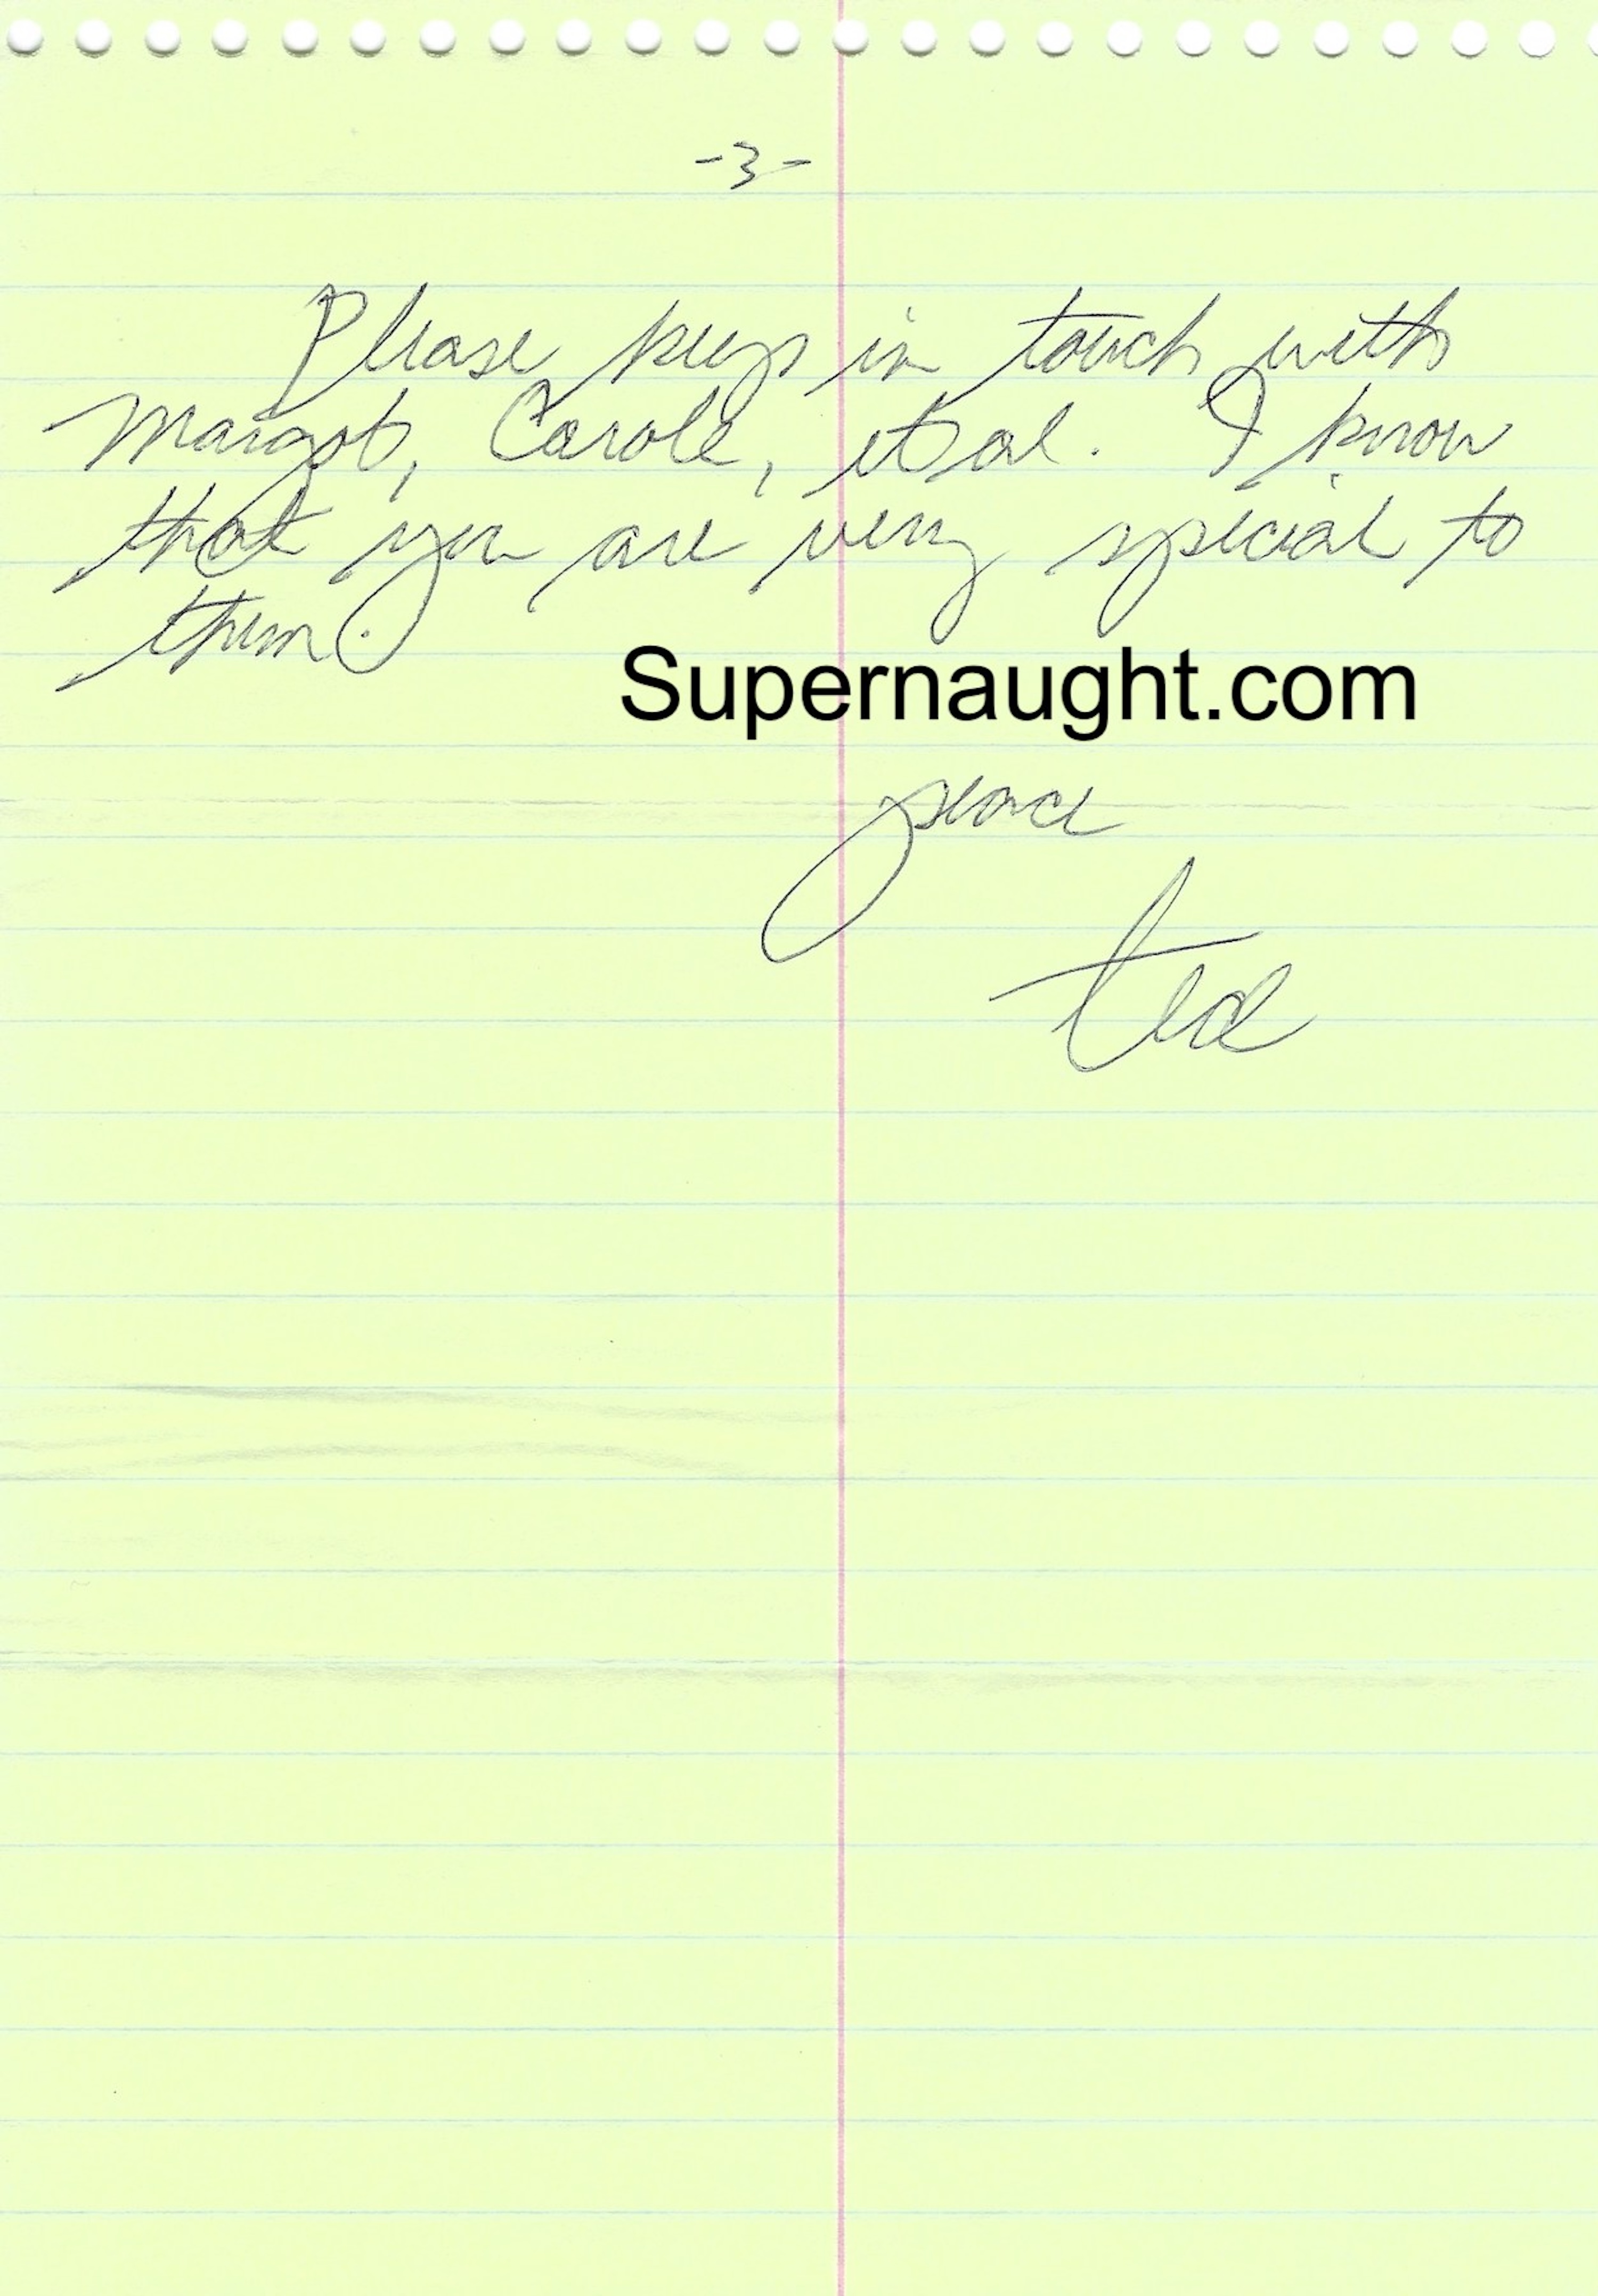 -3-
Please keep in touch with
Margot, Carole, et al. I know
that you are very special to
them.
Supernaught.com
peace
ted